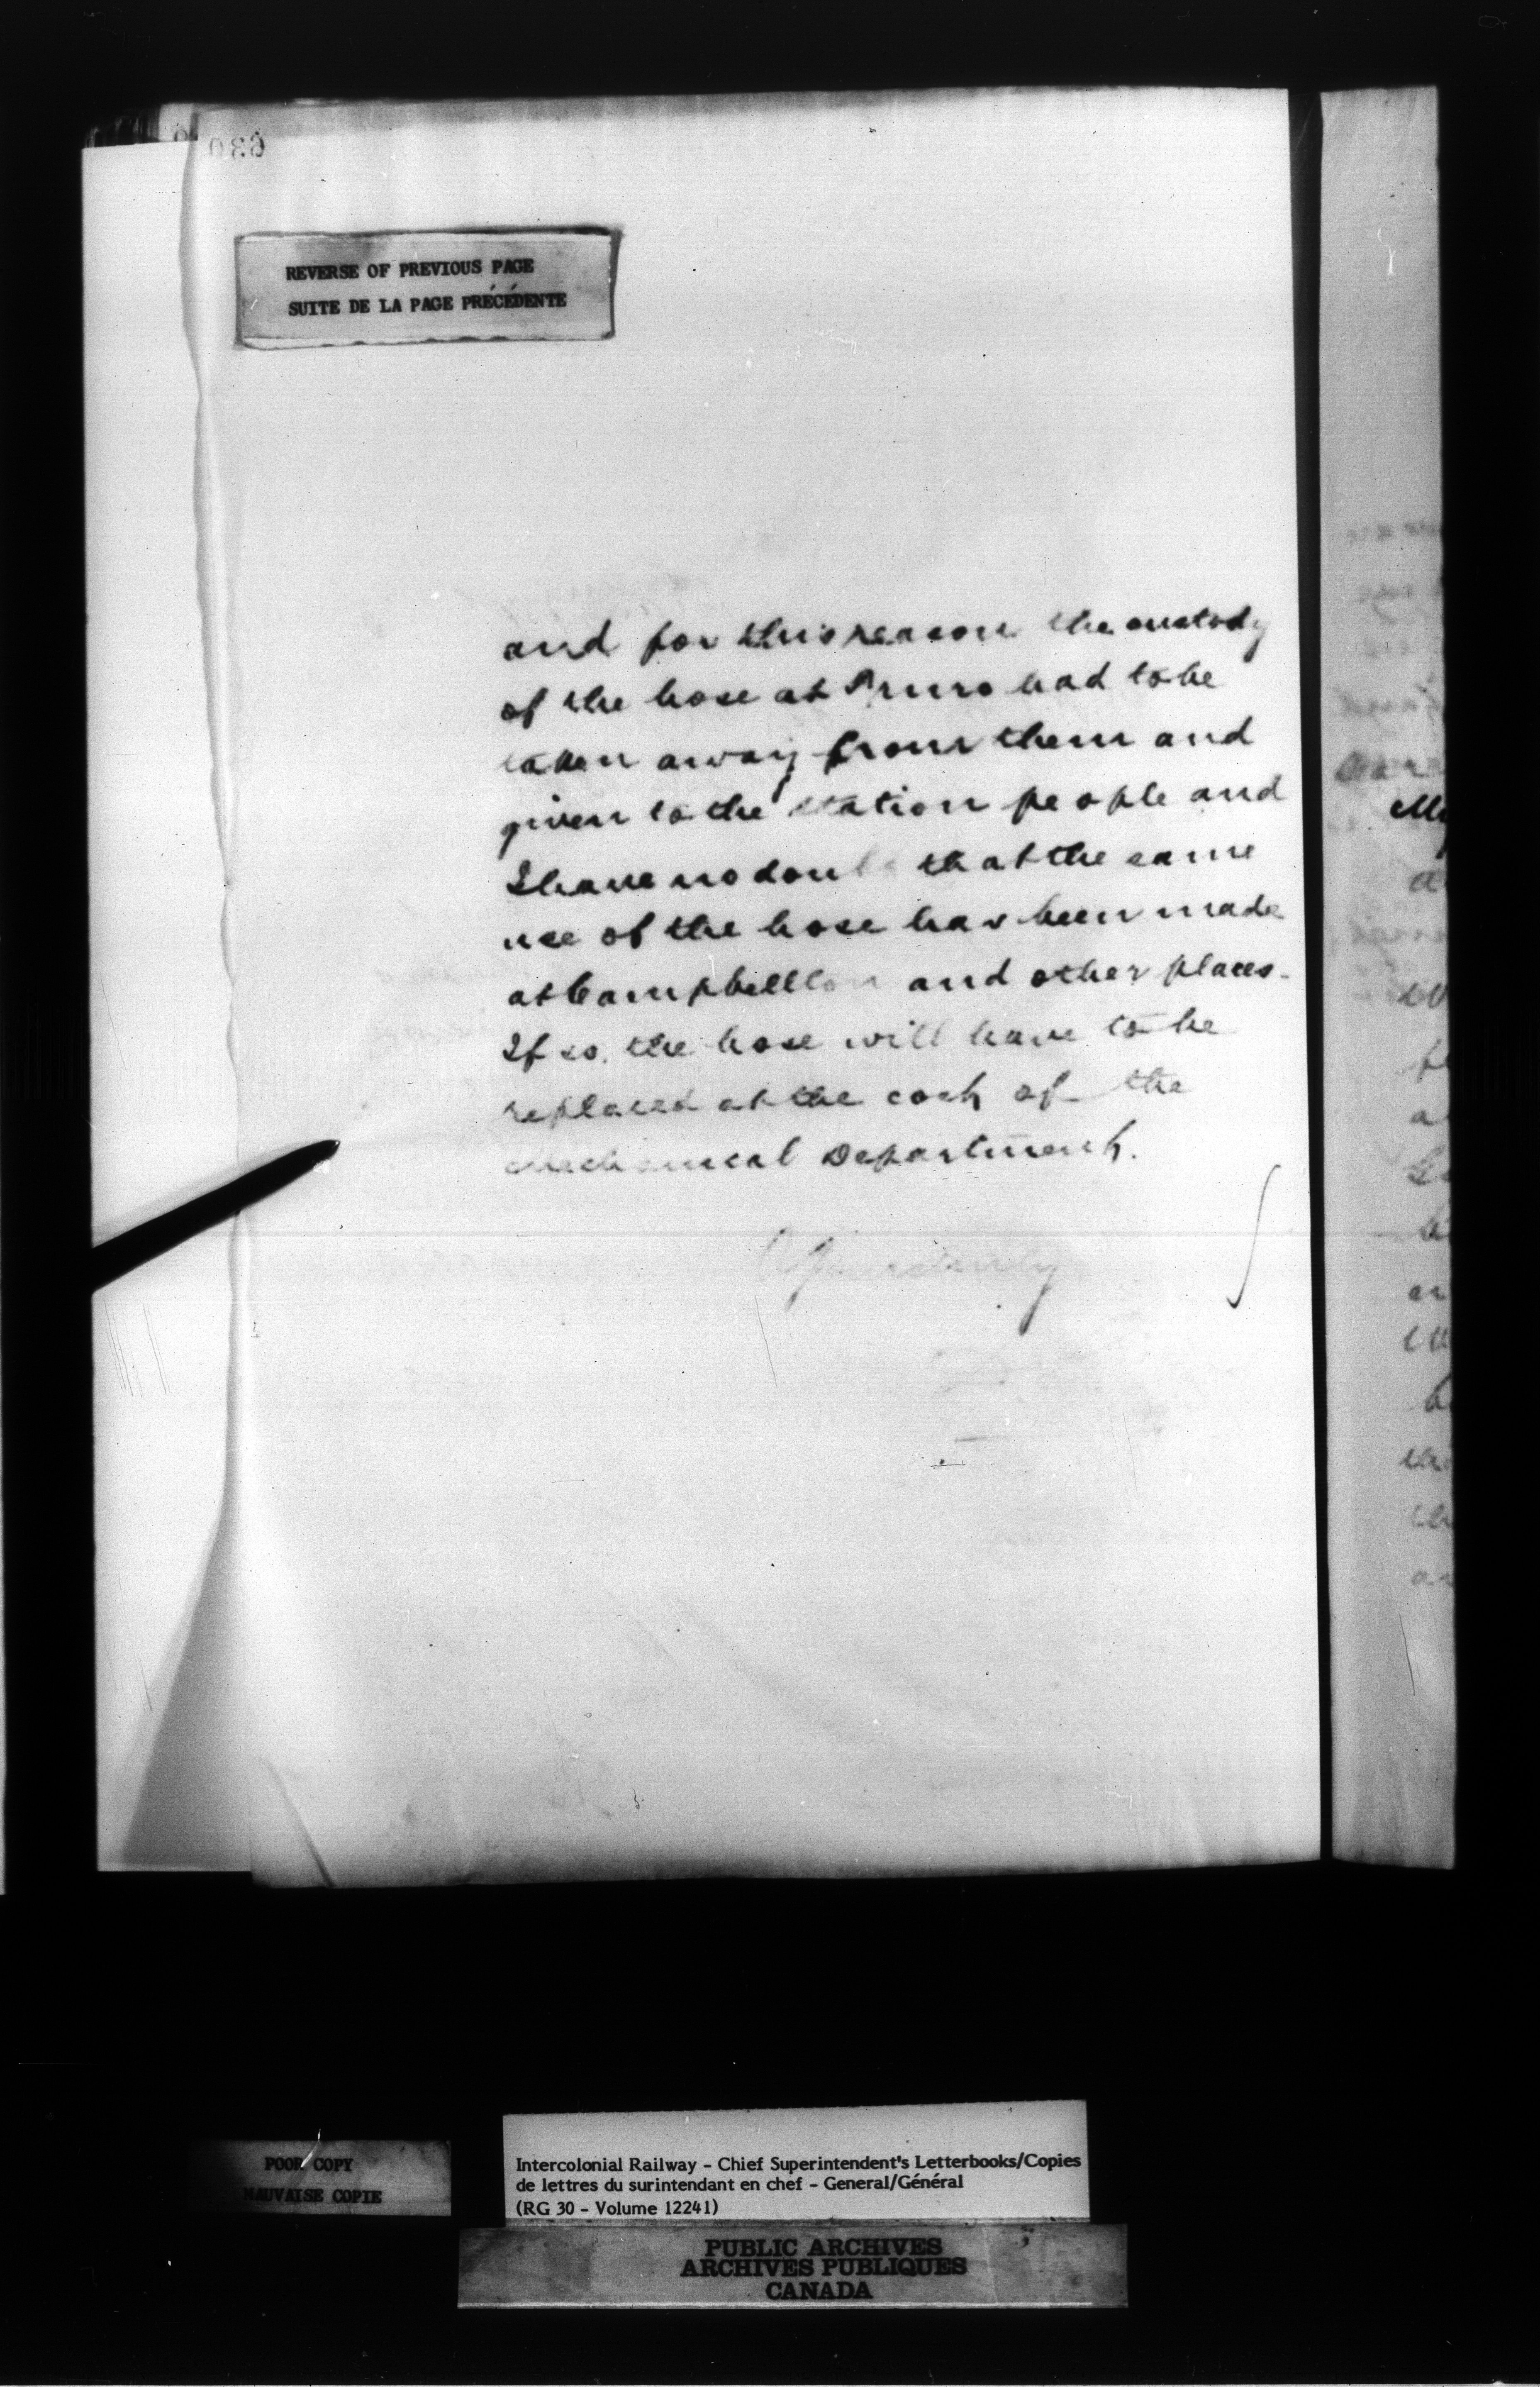 630
REVERSE OF PREVIOUS PAGE
SUITE DE LA PAGE PRÉCÉDENTE
and for this reason the custody
of the hose at Truro had to be
taken away from them and
given to the station people and
I have no doubt that the same
use of the hose has been made
at Campbellton and other places.
If so, the hose will have to be
replaced at the cost of the
Mechanical Department.
Yours truly
POOR COPY
MAUVAISE COPIE
Intercolonial Railway - Chief Superintendent's Letterbooks/Copies
de lettres du surintendant en chef - General/Général
(RG 30 - Volume 12241)
PUBLIC ARCHIVES
ARCHIVES PUBLIQUES
CANADA